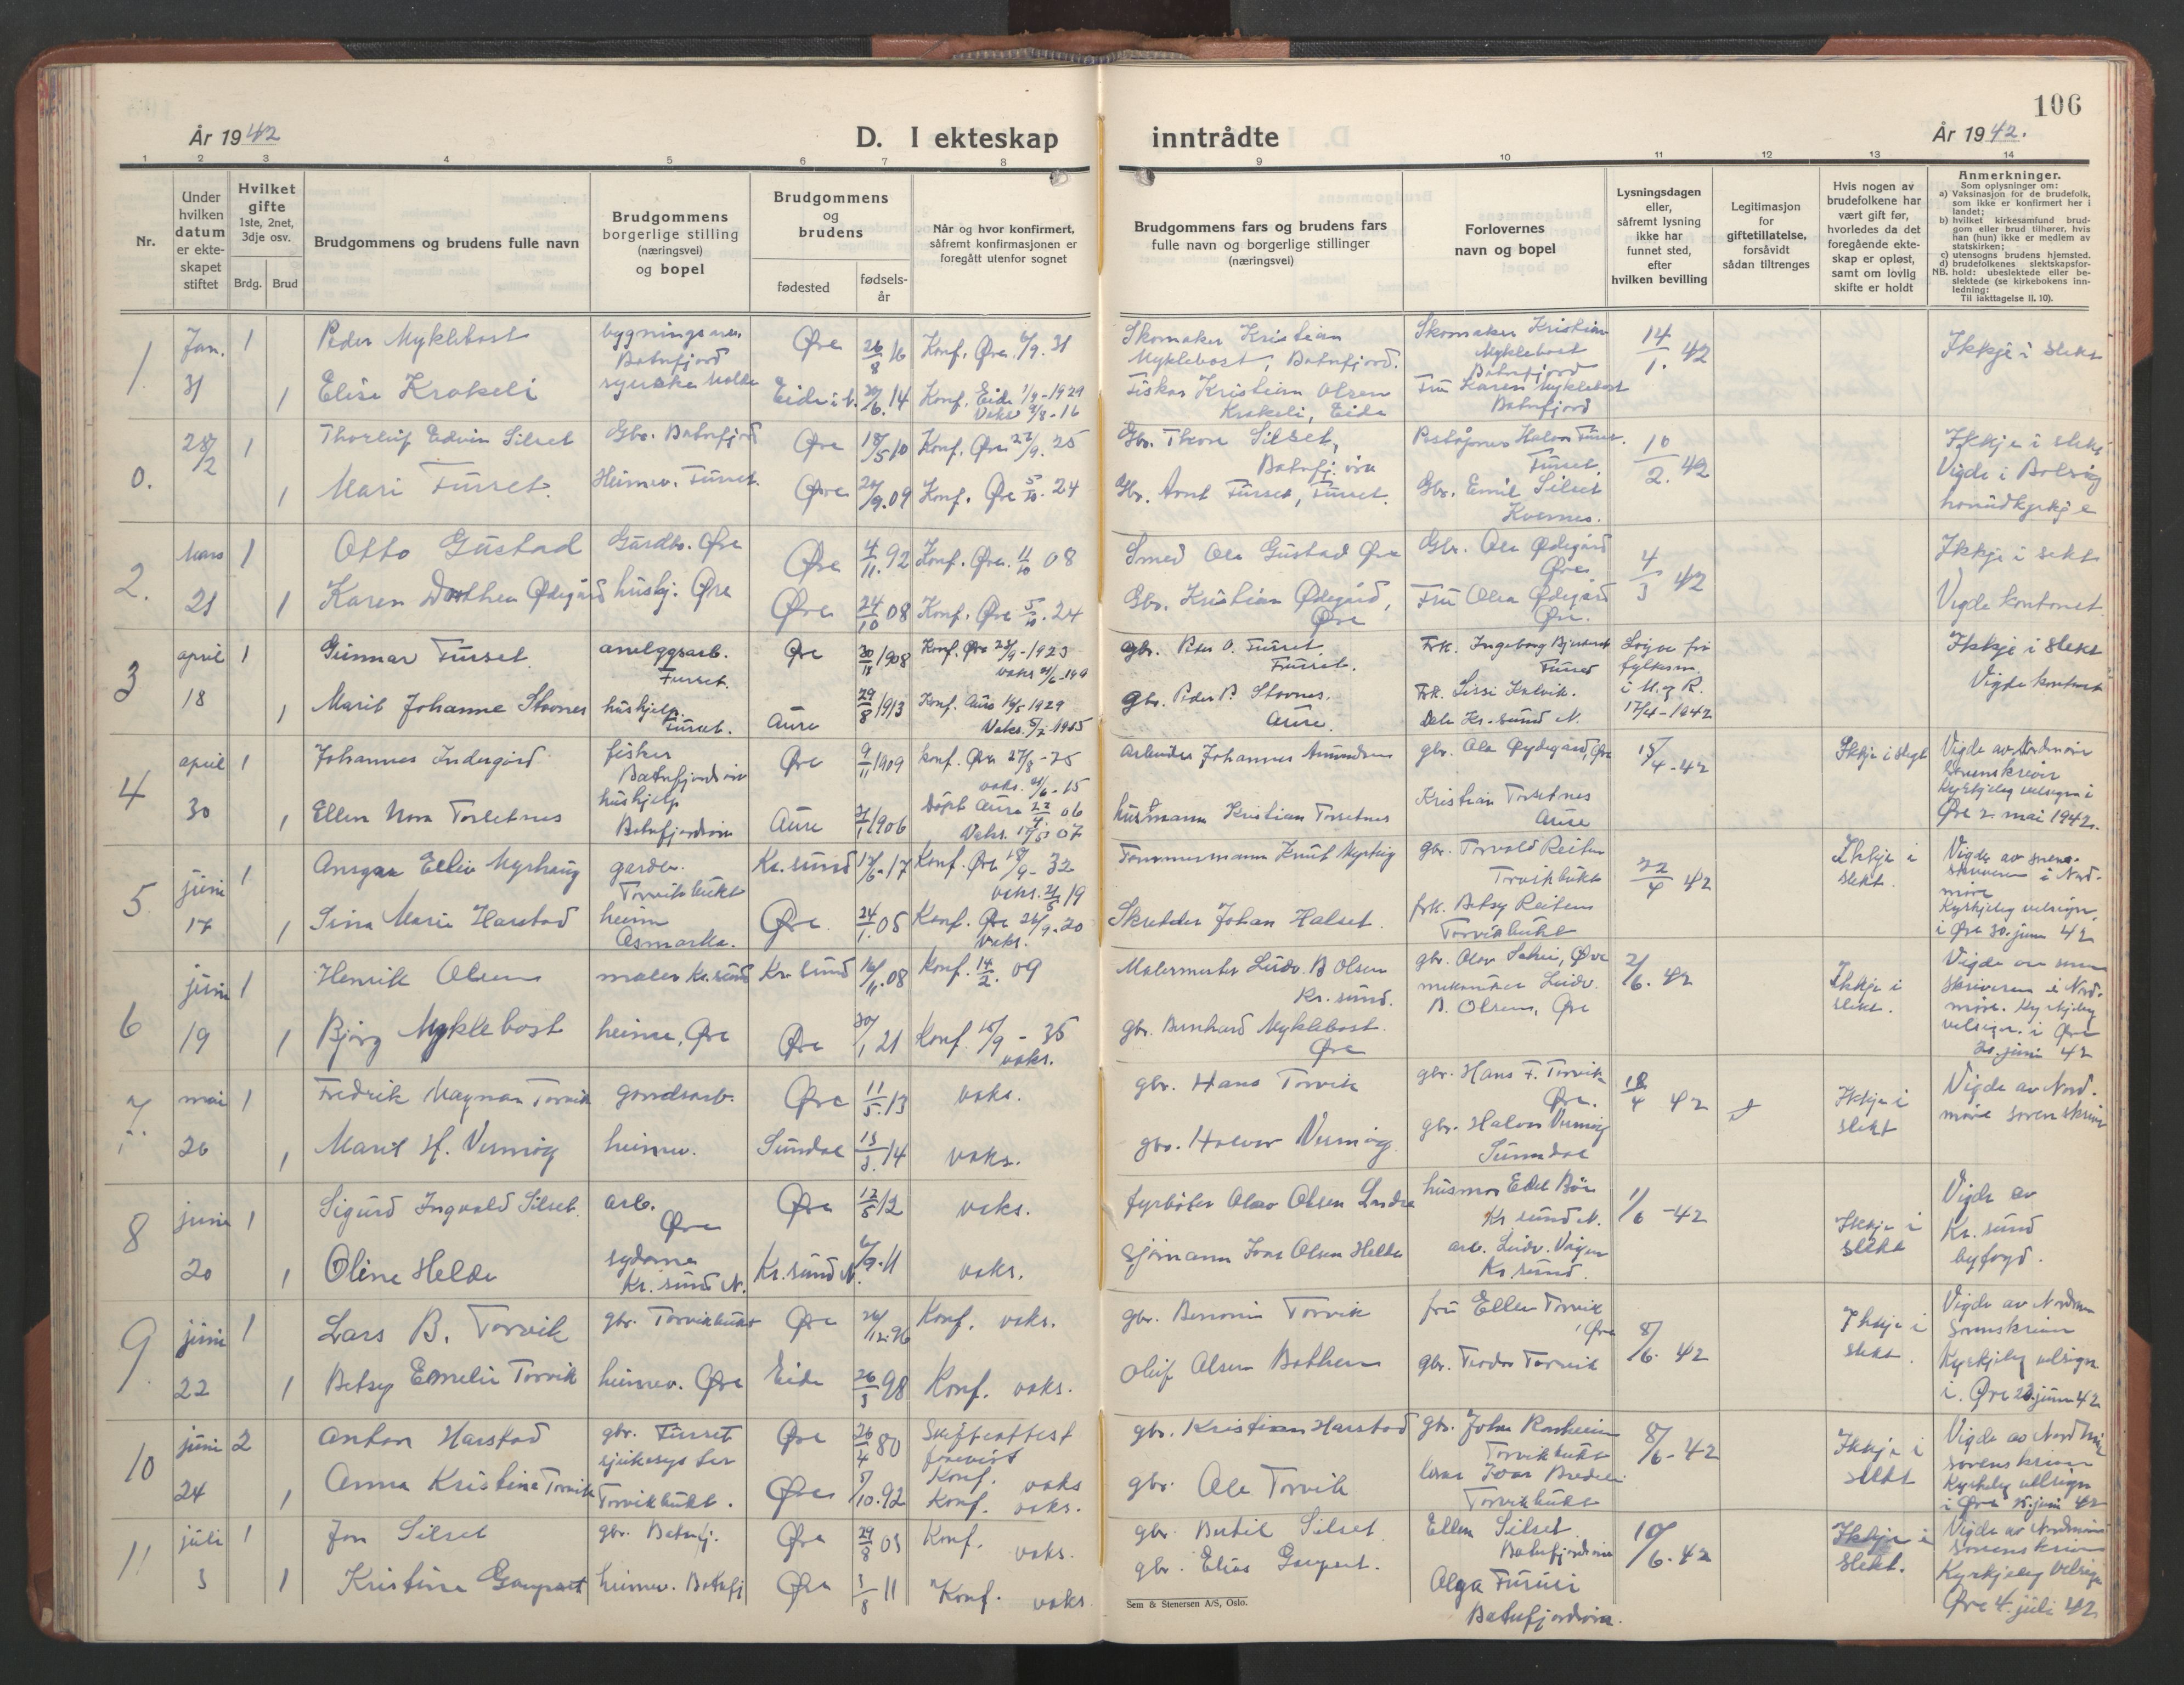 106
År 1942
D. I ekteskap inntrådte
År 1942.
1 2 3 4 5 6 7 8 9 10 11 12 13 14
Nr.
Under hvilken datum er ekte-skapet stiftet
Hvilket gifte 1ste, 2net, 3dje osv.
Brdg. Brud
Brudgommens og brudens fulle navn
Brudgommens borgerlige stilling (næringsvei) og bopel
Brudgommens og brudens
fødested
fødsels-år
Når og hvor konfirmert, såfremt konfirmasjonen er foregått utenfor sognet
Brudgommens fars og brudens fars fulle navn og borgerlige stillinger (næringsvei)
Forlovernes navn og bopel
Lysningsdagen eller, såfremt lysning ikke har funnet sted, efter hvilken bevilling
Legitimasjon for giftetillatelse, forsåvidt sådan tiltrenges
Hvis nogen av brudefolkene har vært gift før, hvorledes da det foregående ekte-skap er opløst, samt om lovlig skifte er holdt
Anmerkninger.
Som oplysninger om:
a) Vaksinasjon for de brudefolk, som ikke er konfirmert her i landet;
b) hvilket kirkesamfund brud-gom eller brud tilhører, hvis han (hun) ikke er medlem av statskirken;
c) utensogns brudens hjemsted.
d) brudefolkenes slektskapsfor-hold: ubeslektede eller be-slektede (se kirkebokens inn-ledning:
NB.
Til iakttagelse II. 10).
1. Jan. 31
1 Peder Myklebost
Batnfjord
Øre 26/8 16 Konf. Øre 6/9. 31
Skomaker Kristian Myklebost, Batnfjord.
Skomaker Kristian Myklebost Batnfjord
14/1. 42
Ikkje i slekt
1 Elise Krakeli
Konf. Eide 1/9-1929
Fiskar Kristian Olsen Krakeli, Eide
Fru Karen Myklebost Batnfjord
0. 28/2
1 Thorleif Edvin Silset
Gbr. Batnfjord
Øre 18/5 10 Konf. Øre 27/9. 25
Gbr. Thore Silset,
Halvor Furset. Furset.
10/2. 42
Ikkje i slekt
Vigde i Bolsøy
1 Mari Furset.
Heimev. Furset.
Øre 9.09 Konf. Øre 5/10. 24
Gbr. Arnt Furset, Furset.
Gbr. Emil Silset Kvernes.
2. Mars 21
1 Otto Gustad
Gardbr. Øre
Øre 4/11. 92 Konf. Øre. 11/10 08
Smed Ola Gustad Øre
Gbr. Ola Ødegård Øre
4/3 42
Ikkje i slekt
1 Karen Dorthea Ødegård
hushj. Øre
Øre 24/10 08 Konf. Øre 5/10. 24
Gbr. Kristian Ødegård, Øre
Fru Olea Ødegård Øre.
Vigde kontoret
3 april 18
1 Gunnar Furset.
anleggsarb. Furset.
Øre 30/11 1908
Konf. Øre 23/9-1923
gbr. Peter O. Furset. Furset.
Frk. Ingeborg Furset
Løyve frå fylkesm. i M. og R. 17/4-1942
Ikkje i slekt
Vigde kontoret
1 Marit Johanne Stavnes
hushjelp. Furset.
Aure 29/8 1913
Konf. Aure 1929
Vaks. 1915
gbr. Peder P. Stavnes. Aure.
Frk. Lissi Kalvik.
Dale Kr.sund N.
4 april 30
1 Johannes Indergård
fisker Batnfjordsøra
Øre 9/11 1909
konf. Øre 27/9-25
vaks. 21/6-15
arbeider Johannes Amundsen
gbr. Ola Øydegård, Øre
15/4-42
Ikkje i slegt
Vigde av Nordmøre Sorenskrivar
Kyrkjeleg velsigna i Øre 2 mai 1942.
1 Ellen Nora Torsetnes
hushjelp Batnfjordsøra
Aure 1906
Døpt Aure 22/4. 06
Vaks. 07
husmann Kristian Torsetnes
Kristian Torsetnes Aure
5 juni 17
1 Ansgar Myrhaug
garder. Torvikbukt
Kr.sund 12/6-17
Konf. Øre 18/9-32
vaks. 19
Tømmermann Knut
gbr. Torvald Reiten Torvikbukt
22/4 42
Ikkje i slekt.
Vigde av i Nord-møre
Kyrkjeleg velsign. i Øre 30. juni 42
1 Sina Marie Harstad
heime Asmarka.
Øre. 24/1. 05
Konf. Øre 26/9-20
Vaks.
Skredder Johan Halset.
frk. Betsy Reiten Torvikbukt
6 juni 19
1 Henrik Olsen
maler Kr.sund
Kr.sund 16/11.08
Konf. 14/2. 09
Malermester Ludv. B Olsen Kr.sund.
gbr. Olav, Øre
2/6. 42
Ikkje i slekt.
Vigde av sorenskriveren i Nord-møre. Kyrkjeleg velsign. i Øre 20. juni 42
1 Bjørg Myklebost
heime, Øre
Øre 30/1 21
Konf. 15/9-35
vaks.
gbr. Bernhard Myklebost. Øre
Ludv. B. Olsen, Øre
7. mai 26
1 Fredrik Magnar Torvik
gardsarb.
Øre 11/5.13
vaks.
gbr. Hans Torvik
gbr. Hans F. Torvik Øre.
18/4 42
Ikkje i slekt
Vigde av Nord-møre sorenskrivar
1 Marit H. Vermøy
heimev.
Sundal 13/3. 14
vaks.
gbr. Halvor Vermøy
gbr. Halvor Vermøy Sunndal
8 juni 20
1 Sigurd Ingvald Silset.
arb. Øre
Øre 12/5 12
vaks.
fyrbøter Olav Olsen
husmor Edel Bøe Kr.sund N.
1/6-42
Ikkje i slekt
Vigde av Kr.sund byfogd.
1 Oline Helde
sydame Kr.sund N.
Kr.sund N. 6/9.11
vaks.
Sjømann Ivar Olsen Helde
arb. Ludv. Kr.sund.
9. juni 22
1 Lars B. Torvik
gbr. Torvikbukt
Øre 26/12.96
Konf. vaks.
gbr. Benonie Torvik
fru Ellen Torvik, Øre
8/6. 42
Ikkje i slekt.
Vigde av Nordmøre Sorenskrivar
Kyrkjeleg velsign. i Øre 23. juni 42
1 Betsy Emelie Torvik
heimev. Øre
Eide 26/3 98
Konf. vaks.
Oluf Olsen Bothen
gbr. Teodor Torvik
10 juni 24
2 Anton Harstad
gbr. Furset
Øre 26/4 80
Skifteattest framvist
Konf. vaks
gbr. Kristian Harstad
gbr. Johan Ranheim Torvikbukt
8/6-42
Ikkje i slekt
Vigde av Nordmøre sorenskrivar
Kyrkjeleg velsign i Øre 25. juni 42
1 Anna Kristine Torvik
sjukesyster Torvikbukt.
Øre 10.92
Konf. vaks.
gbr. Ola Torvik
Ivar Bredeli Torvikbukt
11 juli 3
1 Jon Silset
gbr. Batnfj.
Øre 29/8 03
Konf. vaks.
gbr. Bertil Silset
Ellen Silset Batnfjordsøra
10/6. 42
Ikkje i slekt.
Vigde av Nordmøre sorenskrivar
Kyrkjeleg velsign Øre 4. juli 42
1 Kristine Gaupset
heimev. Batnfj
Øre 3/8 11
Konf. vaks
gbr. Elias Gaupset.
Olga Furset
Batnfjordsøra.
Sem & Stenersen A/S, Oslo.